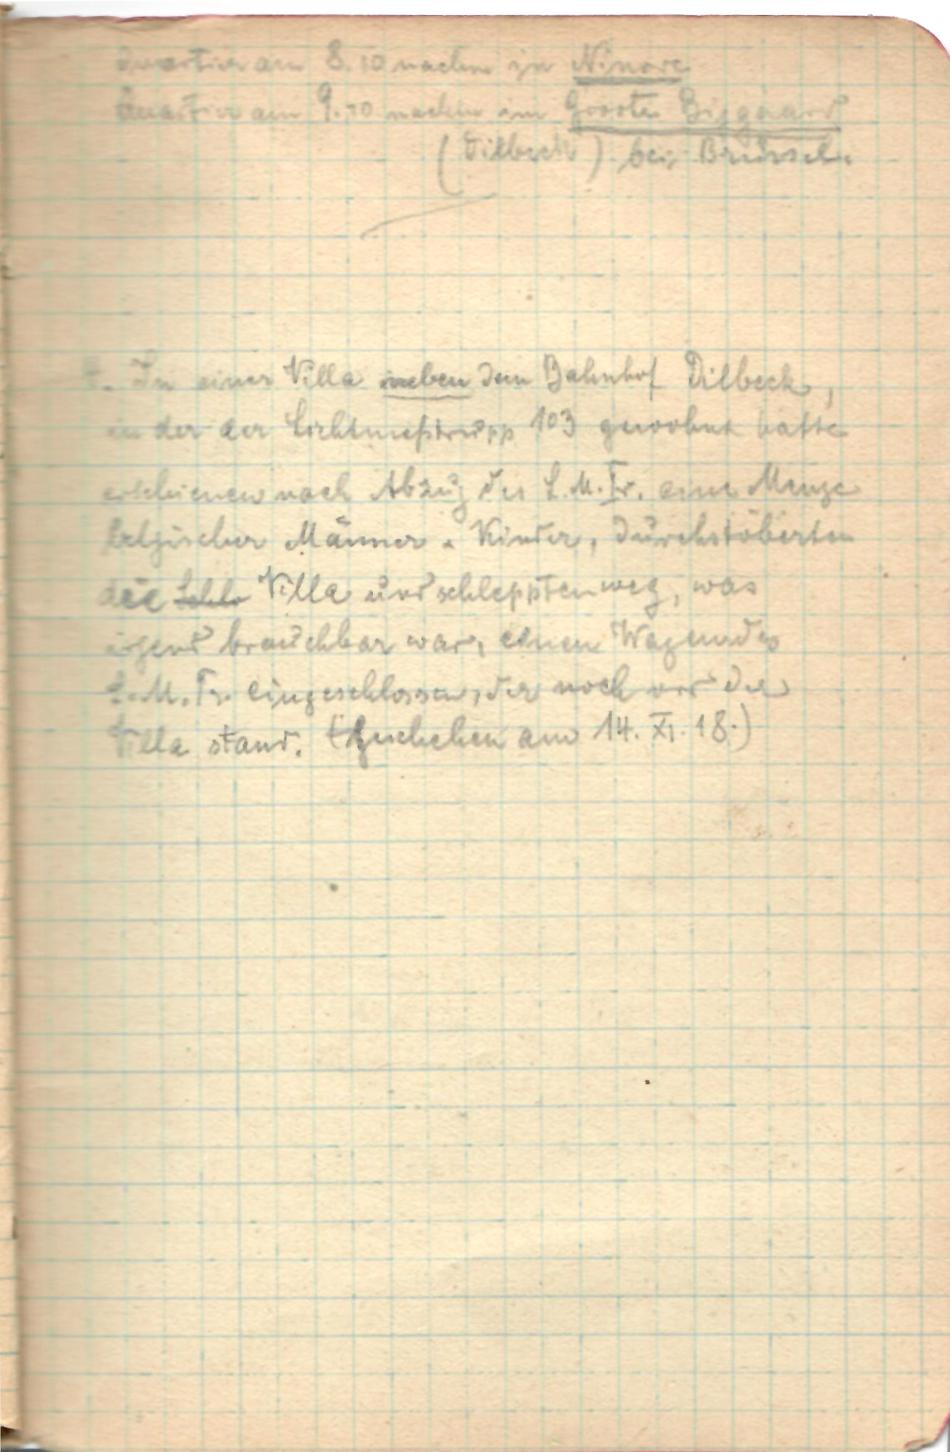 Quartier am 8.10 nachm in Ninove
Quartier am 9.10 nachm in Groote Bijgaard
(Dilbeek) bei Brüssel.
In einer Villa neben dem Bahnhof Dilbeck,
in der der Lichtmeßtrupp 103 gewohnt hatte
erschienen nach Abzug des L.M.Tr. eine Menge
belgischer Männer u. Kinder, durchstöberten
die Villa und schleppten weg, was
irgend brauchbar war, einen Wagen des
L.M.Tr. eingeschlossen, der noch vor der
Villa stand. (Geschehen am 14. XI. 18.)